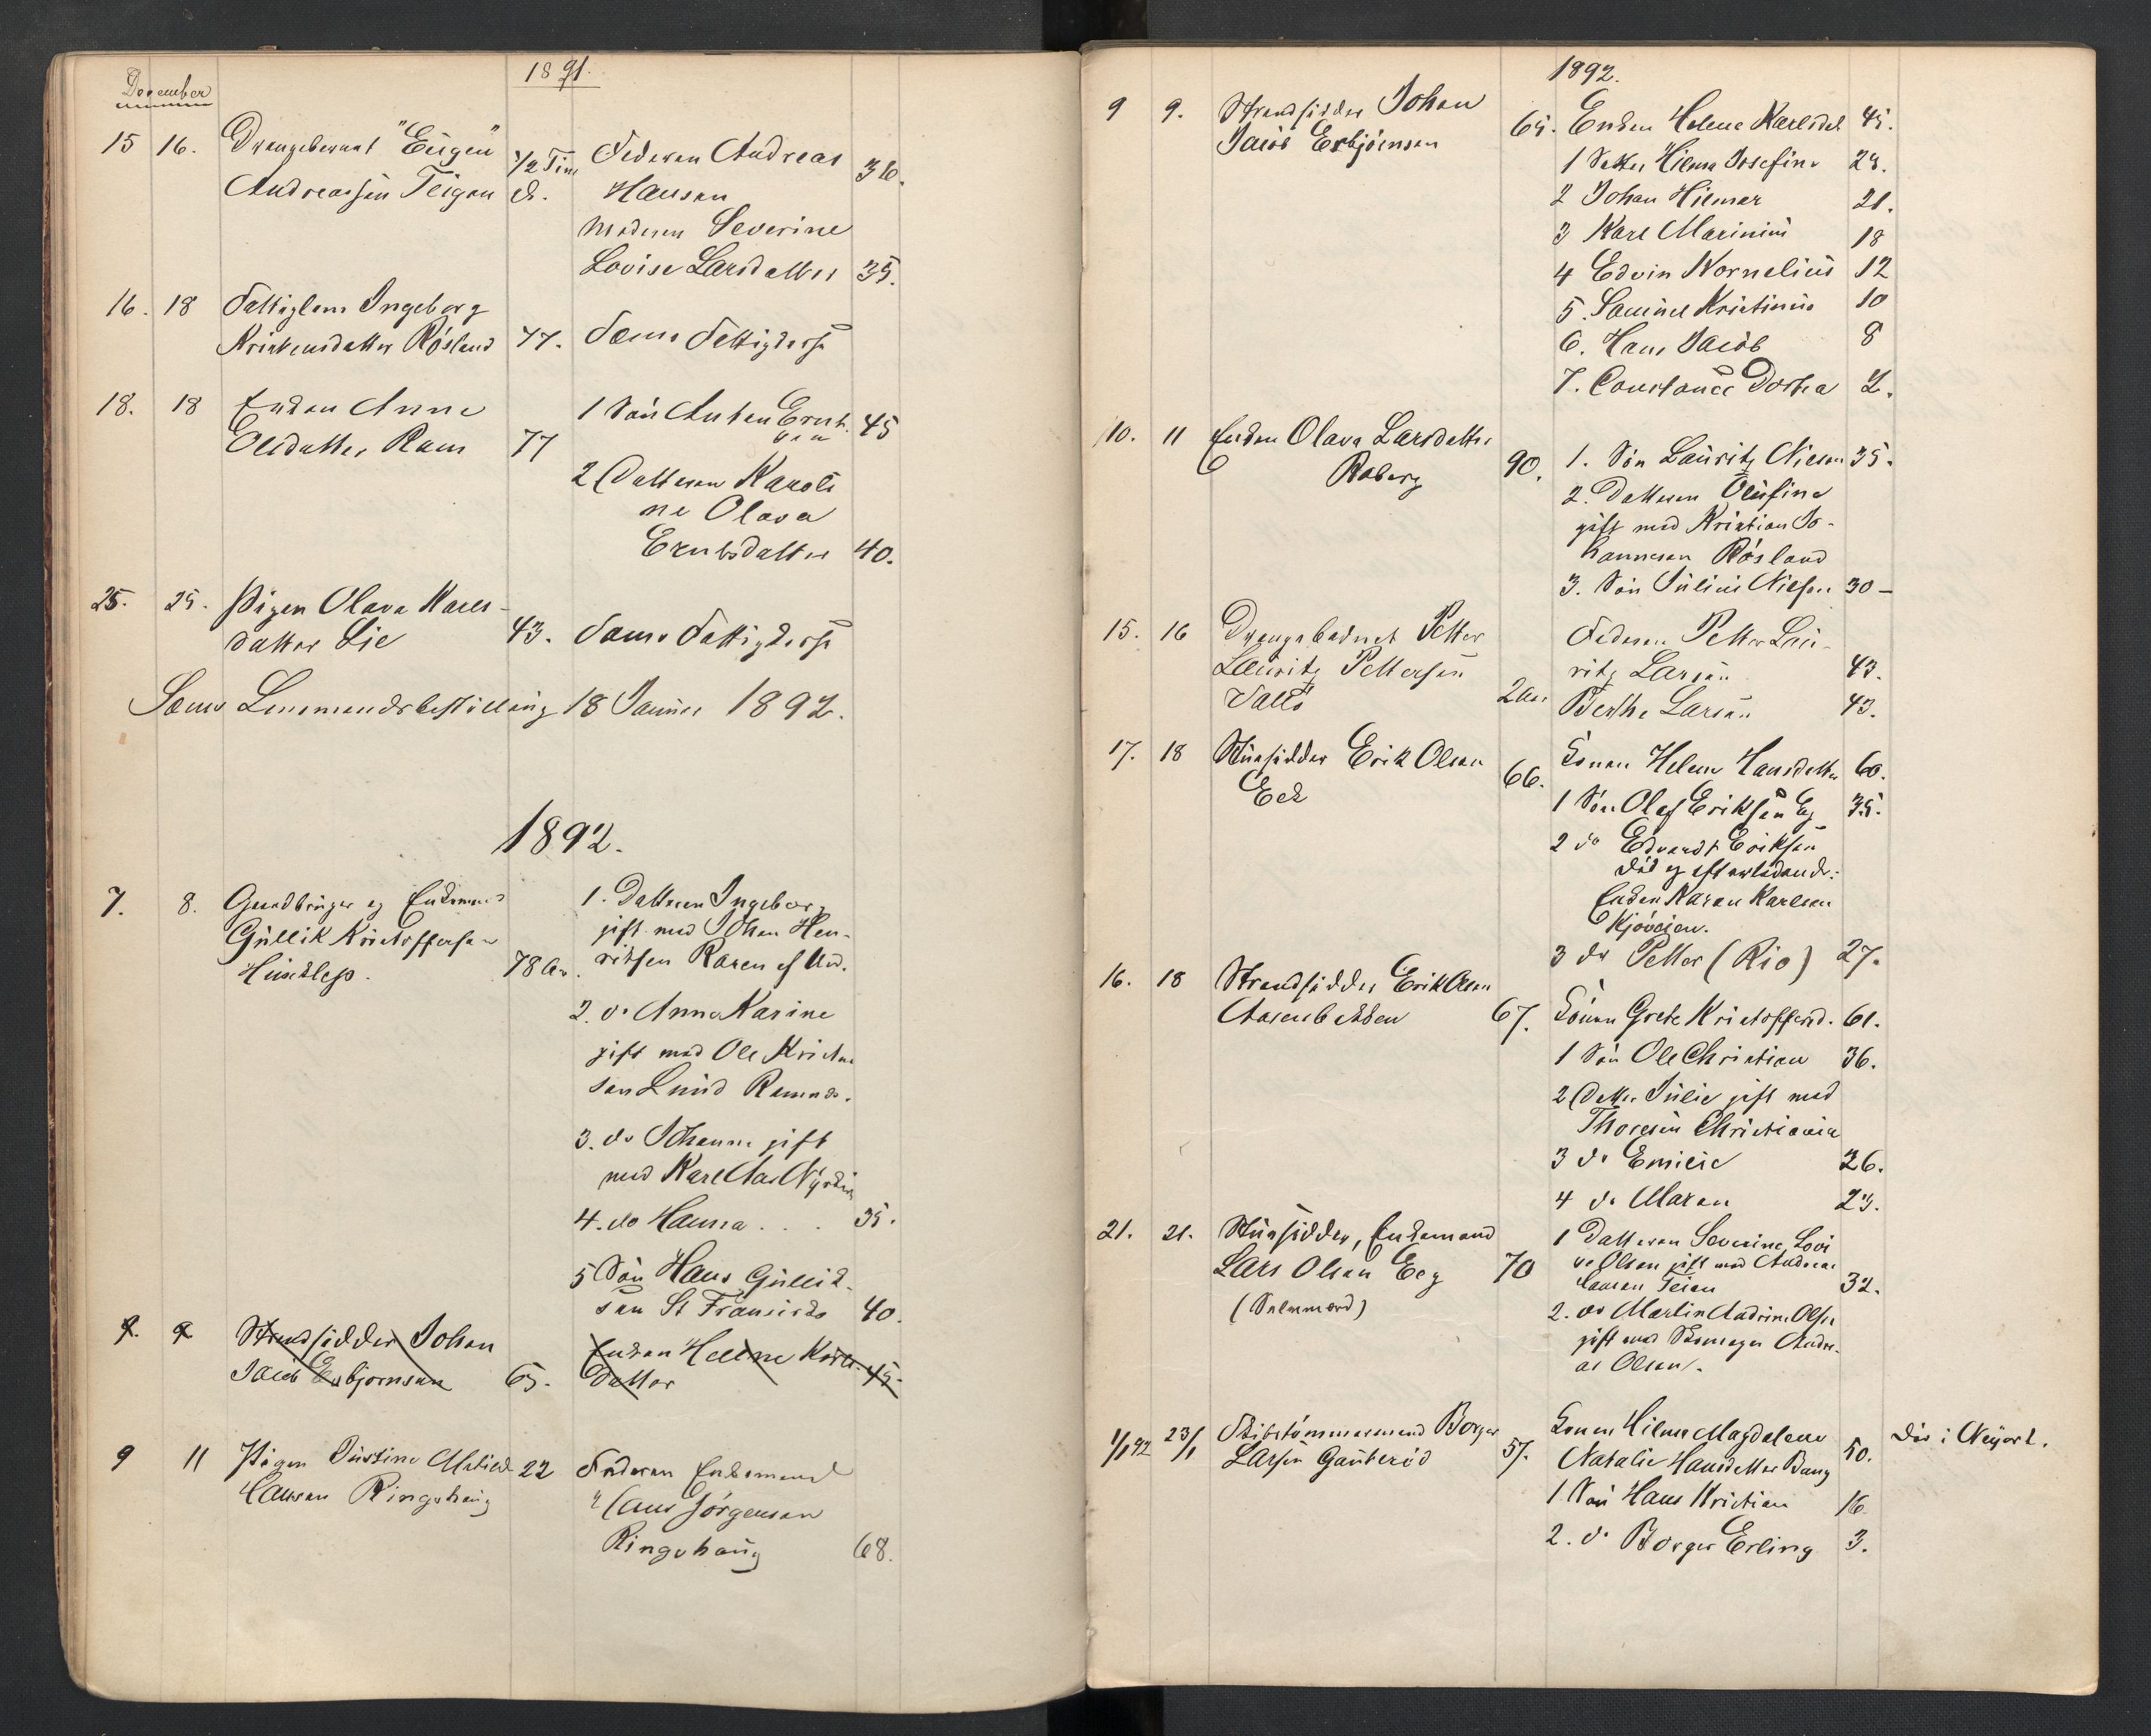 December
1891.
15 16. Drengebarnet "Eugen" 1/2 Time Faderen Andreas 36.
Andreassen Teigen d. Hansen
Moderen Severine
Lovise Larsdatter 35.
16. 18 Fattiglem Ingeborg
Kristensdatter Røsland 77. Sems Fattigkasse
18. 18 Enken Anne 1 Søn Anton Ernt- 45
Olsdatter Ram 77 sen
2 Datteren Karoli
ne Olava
Erntsdatter 40.
25. 25. Pigen Olava Karls-
datter Lie 43. Sems Fattigkasse
Sems Lensmandsbestilling 18 Januar 1892.
1892.
7. 8. Gaardbruger og Enkemand 1. Datteren Ingeborg
Gullik Kristoffersen gift med Johan Hen-
78 Aar. riksen Raren af And.
2. do Anna Karine
gift med Ole Kristen
sen Lund Ramnæs.
3. do Johanne gift
med Karl Aas
4. do Hanna . . . 35.
5 Søn Hans Gullik-
sen St Fransisko 40.
9. 9 Strandsidder Johan Enken Helene Karls- 45.
Jacob Esbjørnsen 65. datter
9 11 Pigen Justine Matilde 22 Faderen Enkemand
Hansen Ringshaug Hans Jørgensen
Ringshaug 68.
1892.
9 9. Strandsidder Johan 65. Enken Helene Karlsdat 45.
Jacob Esbjørnsen 1 Datter Hilma Josefine 23.
2 Johan Hilmar 21.
3 Karl Marinius 18
4 Edvin Kornelius 12
5. Samuel Kristinius 10
6. Hans Jacob 8
7. Constance Dortea 2.
10. 11 Enken Olava Larsdatter 90. 1. Søn Lauritz Nielsen 35.
Roberg 2. Datteren Olufine
gift med Kristian Jo-
hannesen Røsland
3. Søn Julius Nielsen 30 –
15. 16 Drengebarnet Petter Faderen Petter Lau-
Lauritz Pettersen ritz Larsen 43.
Vallø 2 Aar Berthe Larsen 43.
17. 18 Husfidder Erik Olsen 66. Konen Helene Hansdatter 60.
Eek 1 Søn Olaf Eriksen Eg 35.
2 do Edvardt Eriksen
død og efterladende:
Enken Karen Karlsen
Kjøveien.
3 do Petter (Rio) 27.
16. 18 Strandsidder Erik Olsen
Aasenbakken 67. Konen Grete Kristoffersd. 61.
1 Søn Ole Christian 36.
2 Datter Julie gift med
Thoresen Christiania
3 do Emilie 26.
4 do Maren 23.
21. 21. Husfidder, Enkemand 1 Datteren Severine Lovi
Lars Olsen Eeg 70 se Olsen gift med Andreas
Hansen Teien 32.
(Selvmord) 2. do Martin Andrine Olsen
gift med Skomager Andre-
as Olsen.
1/1 92 23/1 Skibstømmermand Borger 57. Konen Hilma Magdalene 50. Død i Neyork.
Larsen Gauterød Natalie Hansdatter Bang
1 Søn Hans Kristian 16
2. do Borger Erling 3.